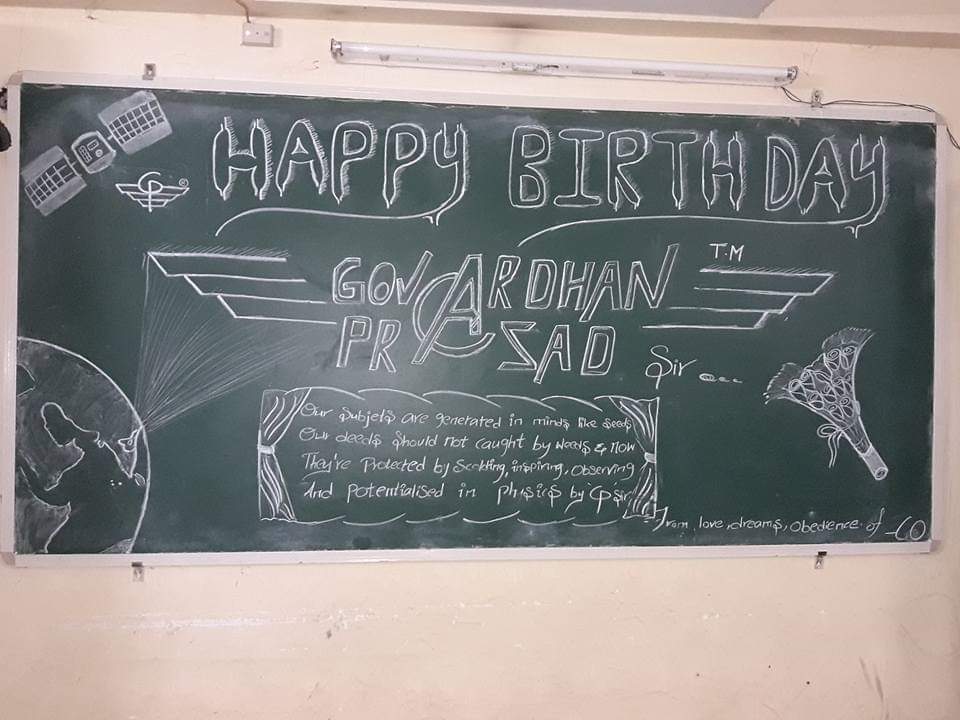 HAPPY BIRTHDAY
GP ®
GOVARDHAN T.M
PRASAD Sir ....
Our Subjets are generated in minds like seeds
Our deeds should not caught by weeds & now
They're Protected by Scolding, inspiring, Observing
And potentialised in phisics by "GP sir"
From, love, dreams, Obedience of -CO